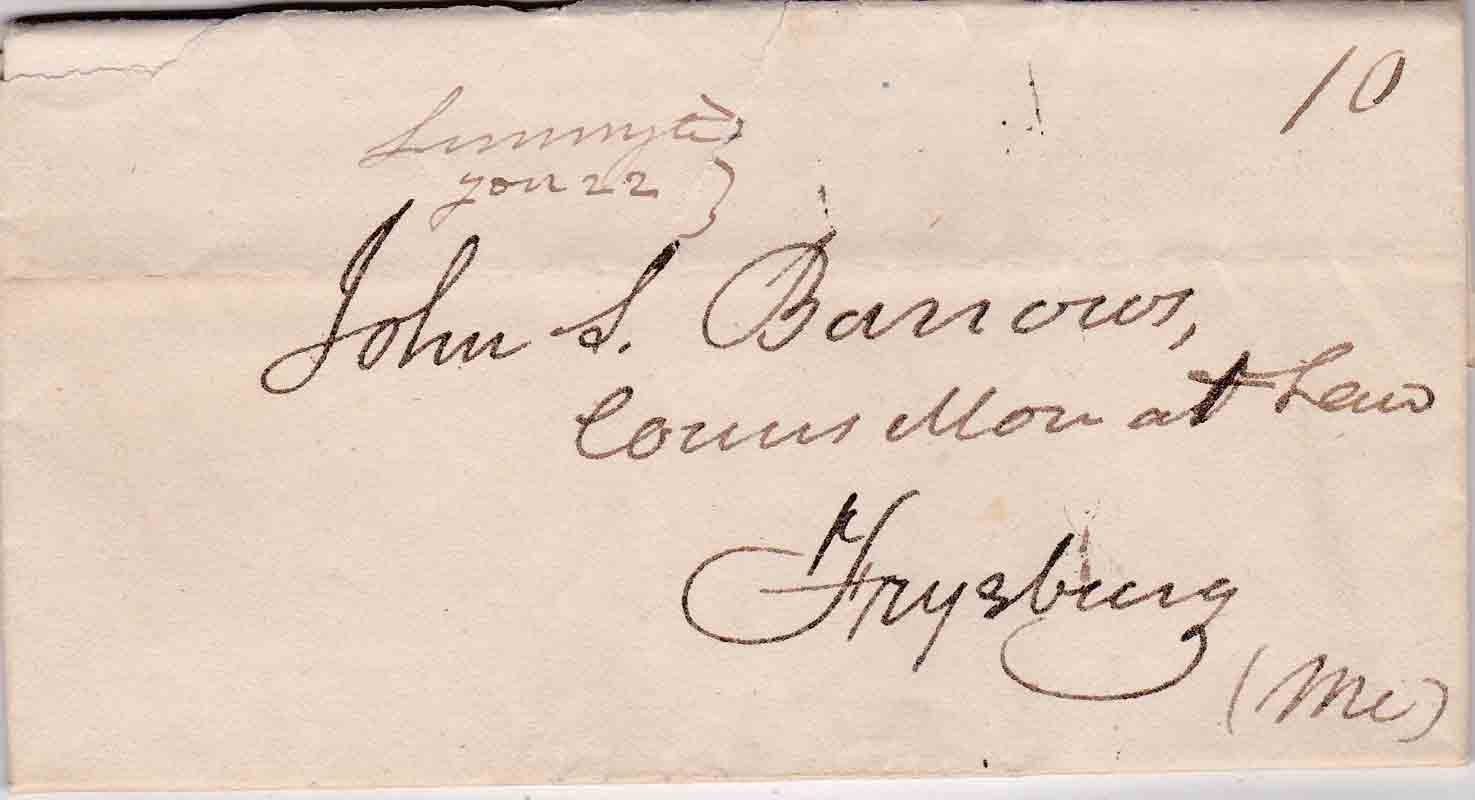 10
Jan 22
John S. Barrows,
Counsellor at Law
Frysburg
(Me)